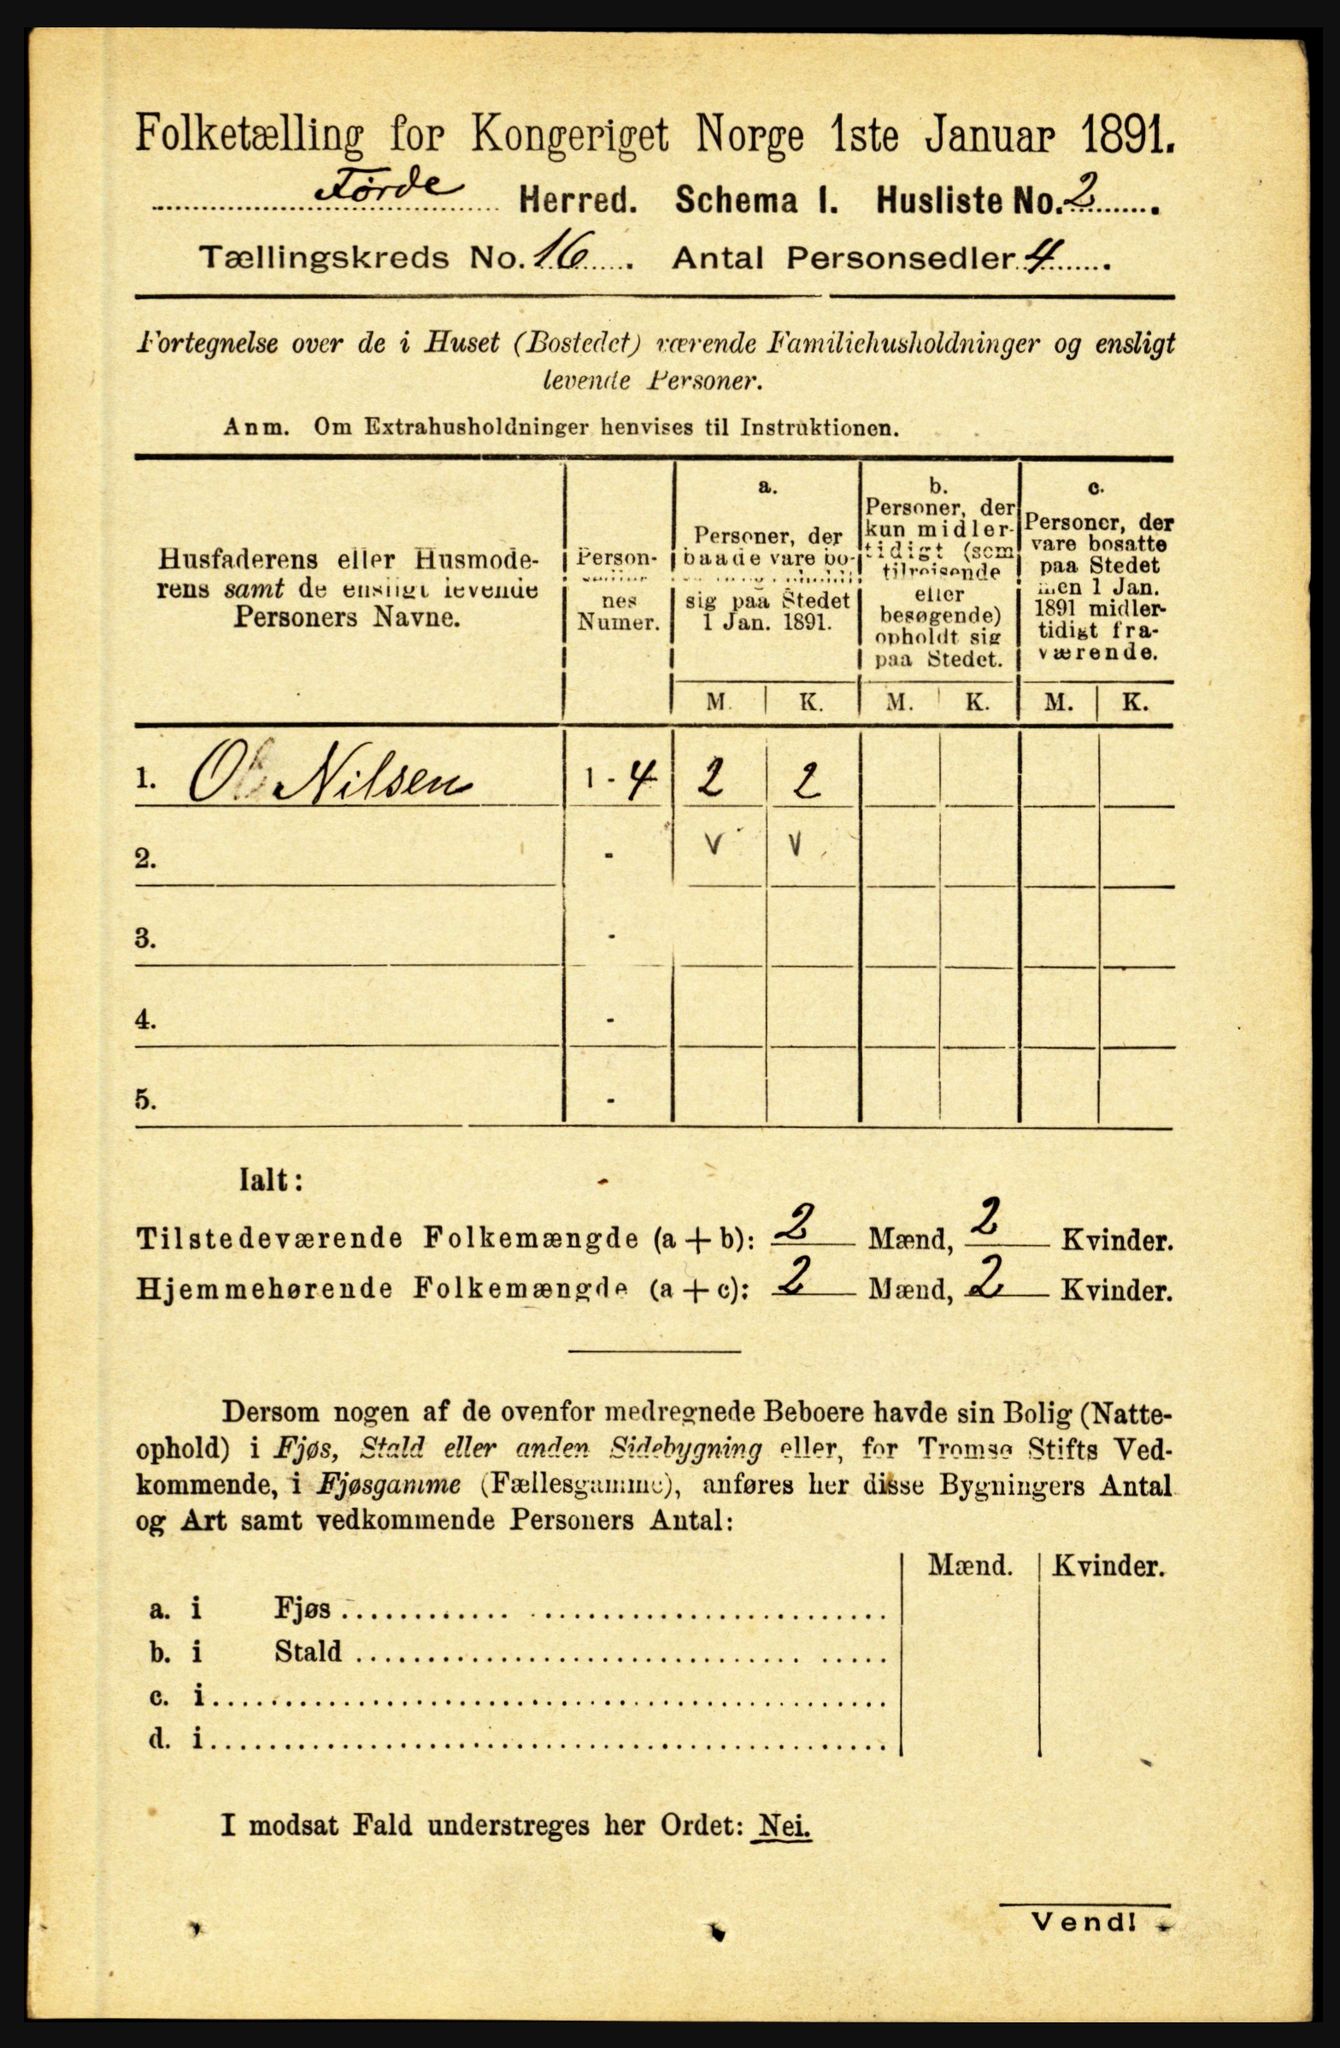 Folketælling for Kongeriget Norge 1ste Januar 1891.
Førde Herred. Schema I. Husliste No. 2.
Tællingskreds No. 16. Antal Personsedler 4.
Fortegnelse over de i Huset (Bostedet) værende Familiehusholdninger og ensligt
levende Personer.
Anm. Om Extrahusholdninger henvises til Instruktionen.
Husfaderens eller Husmode-
rens samt de ensligt levende
Personers Navne.
Person-
nes
Numer.
a.
Personer, der
baade vare bo-
sig paa Stedet
1 Jan. 1891.
b.
Personer, der
kun midler-
tidigt (som
tilreisende
eller
besøgende)
opholdt sig
paa Stedet.
c.
Personer, der
vare bosatte
paa Stedet
men 1 Jan.
1891 midler-
tidigt fra-
værende.
M. K. M. K. M. K.
1. Nilsen 1 - 4 2 2
2. - v v
3. -
4. -
5. -
Ialt:
Tilstedeværende Folkemængde (a + b): 2 Mænd, 2 Kvinder.
Hjemmehørende Folkemængde (a + c): 2 Mænd, 2 Kvinder.
Dersom nogen af de ovenfor medregnede Beboere havde sin Bolig (Natte-
ophold) i Fjøs, Stald eller anden Sidebygning eller, for Tromsø Stifts Ved-
kommende, i Fjøsgamme (Fællesgamme), anføres her disse Bygningers Antal
og Art samt vedkommende Personers Antal:
Mænd. Kvinder.
a. i Fjøs
b. i Stald
c. i
d. i
I modsat Fald understreges her Ordet: Nei.
Vend!